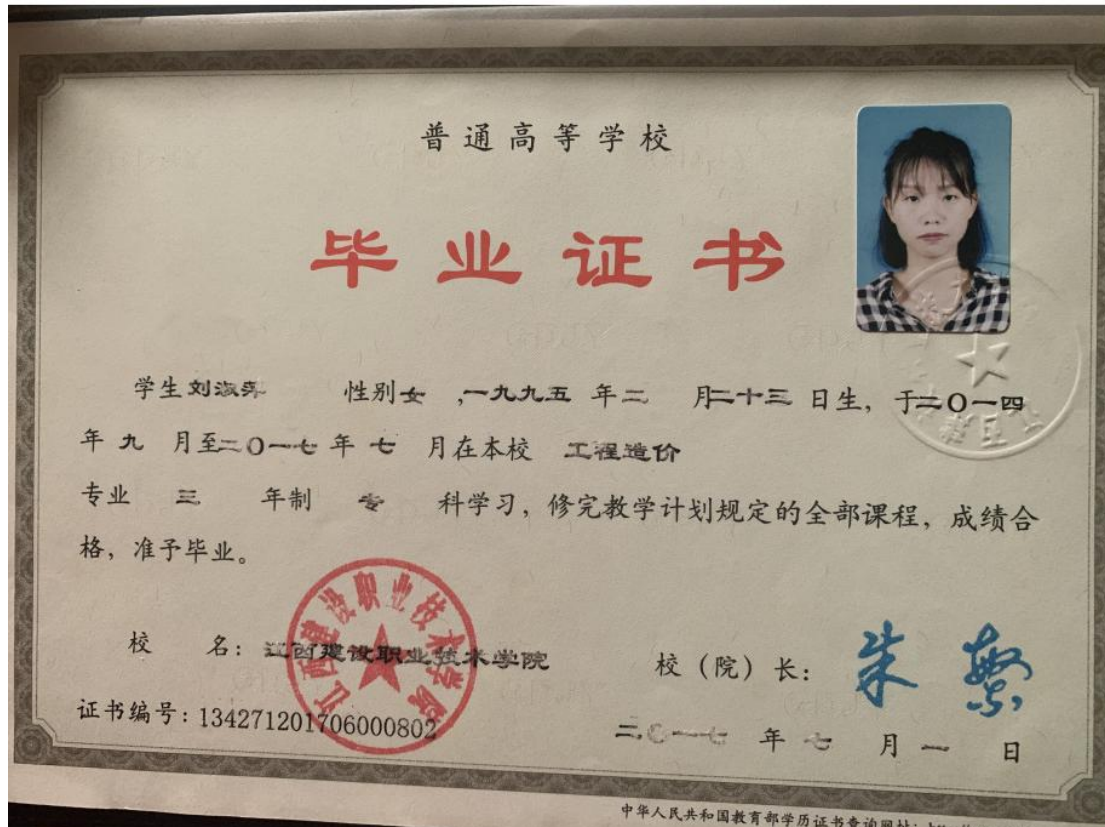 普通高等学校
毕业证书
学生刘淑萍 性别女 ,一九九五 年二 月二十三 日生, 于二〇一四
年 九 月至二〇一七 年 七 月在本校 工程造价
专业 三 年制 专 科学习, 修完教学计划规定的全部课程, 成绩合
格, 准予毕业。
江西建设职业技术学院
校 名: 江西建设职业技术学院
校(院)长: 朱繁
证书编号: 134271201706000802
二〇一七 年 七 月 一 日
中华人民共和国教育部学历证书查询网址: